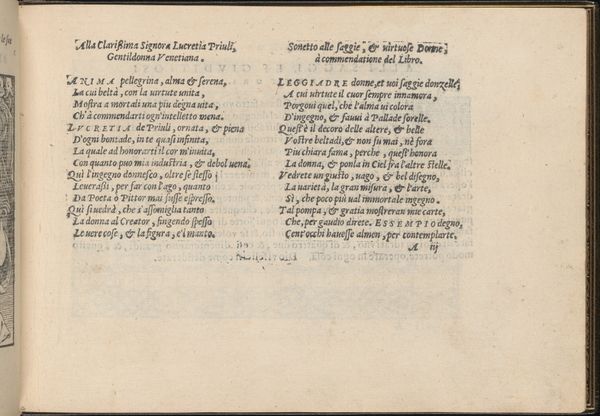 Alla Clarißima Signora Lucretia Priuli,
Gentildonna Venetiana.
ANIMA pellegrina, alma & serena,
La cui beltà, con la uirtute unita,
Mostra a mortali una piu degna uita,
Ch'à commendarti ogn'intelletto mena.
LVCRETIA de Priuli, ornata, & piena
D'ogni bontade, in te quasi infinita,
La quale ad honorarti il cor m'inuita,
Con quanto puo mia industria, & debol uena.
Qui l'ingegno donnesco, oltre se stesso
Leuerassi, per far con l'ago, quanto
Da Poeta ò Pittor mai fusse espresso.
Qui si uedrà, che s'assomiglia tanto
La donna al Creator, fingendo spesso
Le uere cose, & la figura, e'l manto.
Sonetto alle saggie, & uirtuose Donne,
à commendatione del Libro.
LEGGIADRE donne, et uoi saggie donzelle,
A cui uirtute il cuor sempre innamora,
Porgoui quel, che l'alma ui colora
D'ingegno, & fauui à Pallade sorelle.
Quest'è il decoro delle altere, & belle
Vostre beltadi, & non fu mai, nè fora
Piu chiara fama, perche, quest'honora
La donna, & ponla in Ciel fra l'altre stelle.
Vedrete un giusto, uago, & bel disegno,
La uarietà, la gran misura, & l'arte,
Sì, che poco più ual immortale ingegno.
Tal pompa, & gratia mostreran mie carte,
Che, per gaudio direte. ESSEMPIO degno,
Cent'occhi hauesse almen, per contemplarte.
A iij